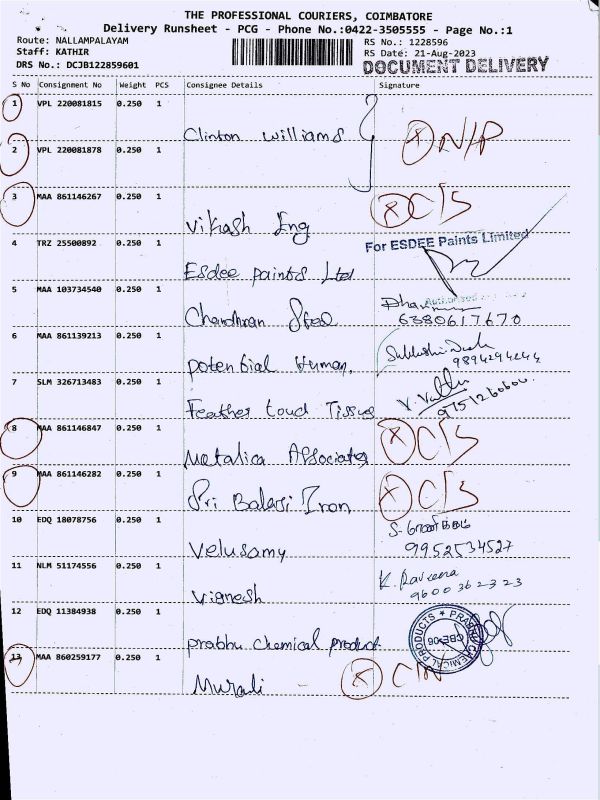 THE PROFESSIONAL COURIERS, COIMBATORE
Delivery Runsheet - PCG - Phone No.:0422-3505555 - Page No.:1
Route: NALLAMPALAYAM
RS No.: 1228596
Staff: KATHIR
RS Date: 21-Aug-2023
DRS No.: DCJB122859601
DOCUMENT DELIVERY
S No Consignment No Weight PCS Consignee Details Signature
1 VPL 220081815 0.250 1 Clinton Williams
2 VPL 220081878 0.250 1 X N/P
3 MAA 861146267 0.250 1 Vikash Eng X C/S
4 TRZ 25500892 0.250 1 Esdee paints Ltd For ESDEE Paints Limited
5 MAA 103734540 0.250 1 Chandhran Steel 6380617670
6 MAA 861139213 0.250 1 potential Human. 9894294244
7 SLM 326713483 0.250 1 Feather touch Tissue
8 MAA 861146847 0.250 1 Metalica Associates X C/S
9 MAA 861146282 0.250 1 Sri Balaji Iron X C/S
10 EDQ 18078756 0.250 1 Velusamy 9952534527
11 NLM 51174556 0.250 1 Vignesh K. Raveena 9600362323
12 EDQ 11384938 0.250 1 prabhu chemical product
13 MAA 860259177 0.250 1 Murali X